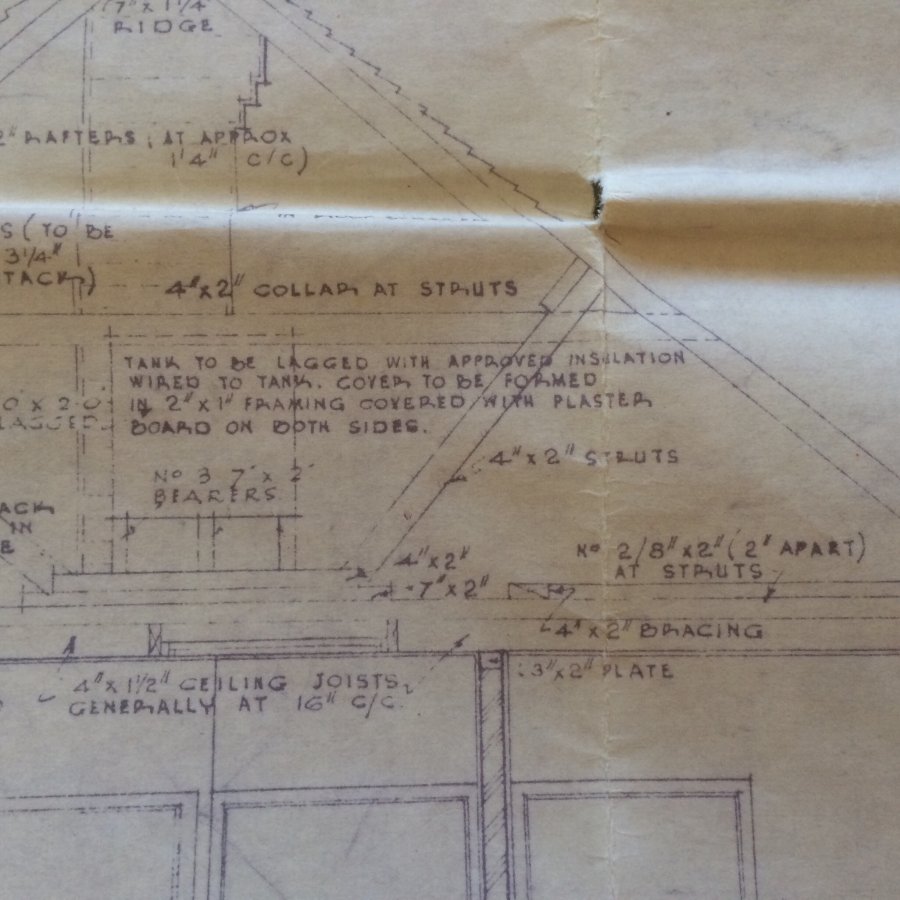 (7"x 1¼"
RIDGE
2" RAFTERS, AT APPROX
1'4" C/C)
S (TO BE
3¼"
TACK)
4"x2" COLLAR AT STRUTS
TANK TO BE LAGGED WITH APPROVED INSULATION
WIRED TO TANK. COVER TO BE FORMED
IN 2"x1" FRAMING COVERED WITH PLASTER
BOARD ON BOTH SIDES.
0 x 2'0"
LAGGED.
4"x2" STRUTS
No 3 7"x 2"
BEARERS
ACK
IN
E
No 2/8"x2" (2" APART)
AT STRUTS
4"x2"
7"x2"
4"x2" BRACING
3"x2" PLATE
4"x1½" CEILING JOISTS,
GENERALLY AT 16" C/C.